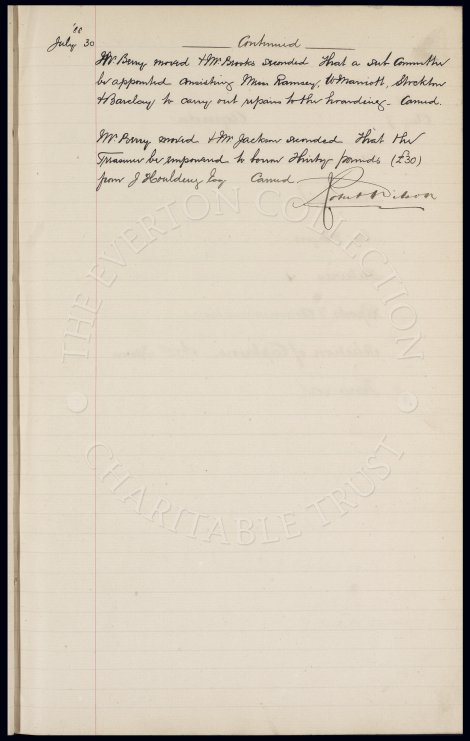 '88
July 30 Continued
Mr Berry moved & Mr Brooks seconded That a sub Committee
be appointed consisting Messrs Ramsey, W Marriott, Stockton
& Barclay to carry out repairs to the hoarding. Carried.
Mr Berry moved & Mr Jackson seconded That the
Treasurer be empowered to borrow Thirty pounds (£30)
from J Houlding Esq Carried
THE EVERTON COLLECTION
CHARITABLE TRUST